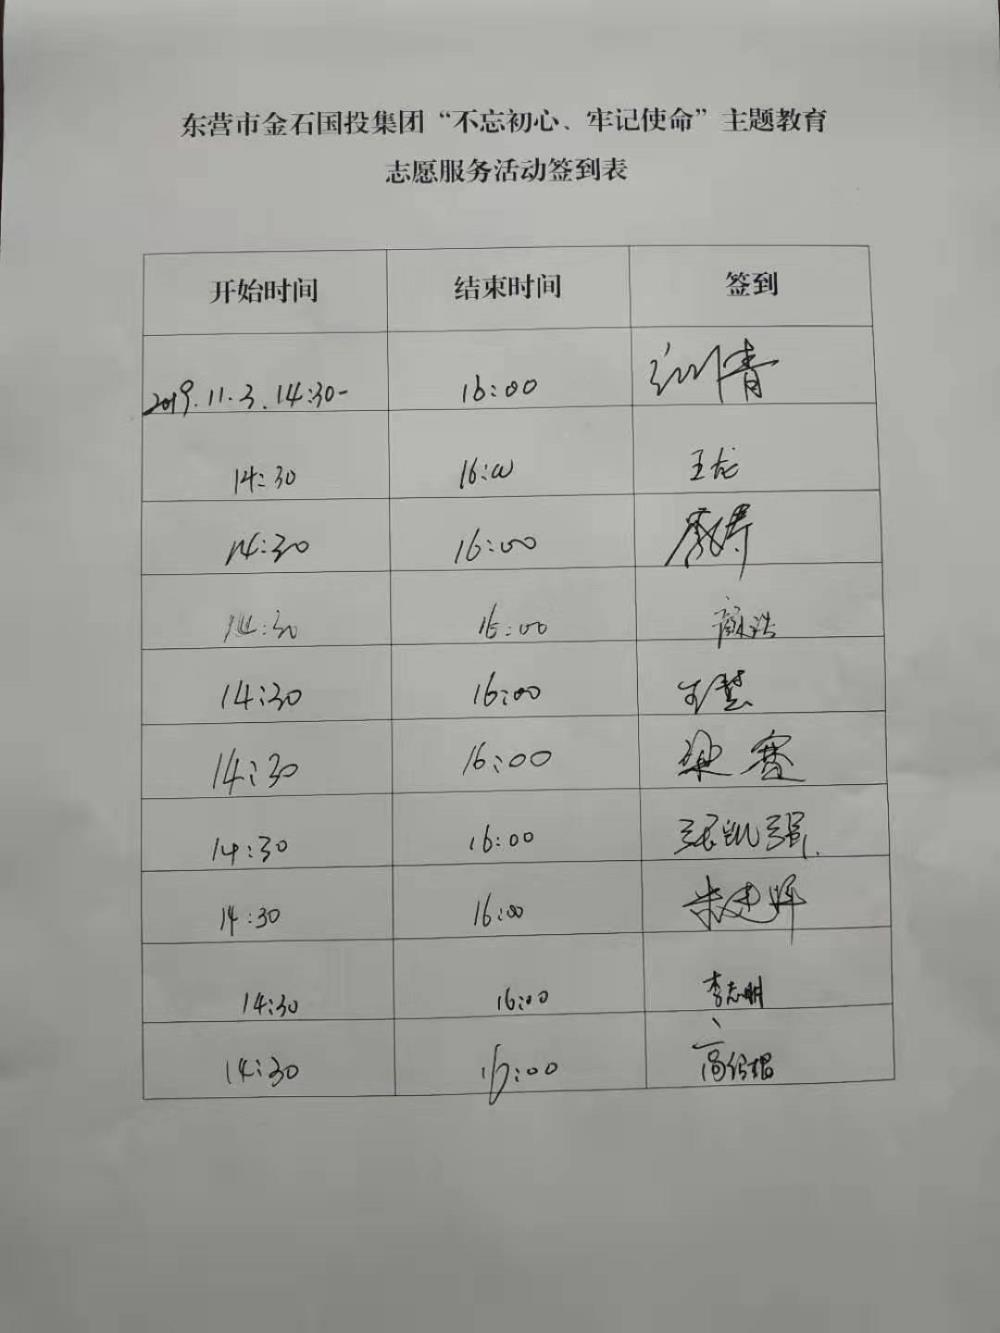 东营市金石国投集团“不忘初心、牢记使命”主题教育
志愿服务活动签到表
开始时间 结束时间 签到
2019.11.3.14:30- 16:00
14:30 16:00 王龙
14:30 16:00
14:30 16:00 颜浩
14:30 16:00
14:30 16:00 梁赛
14:30 16:00 张凯强
14:30 16:00 朱建辉
14:30 16:00 李志明
14:30 16:00